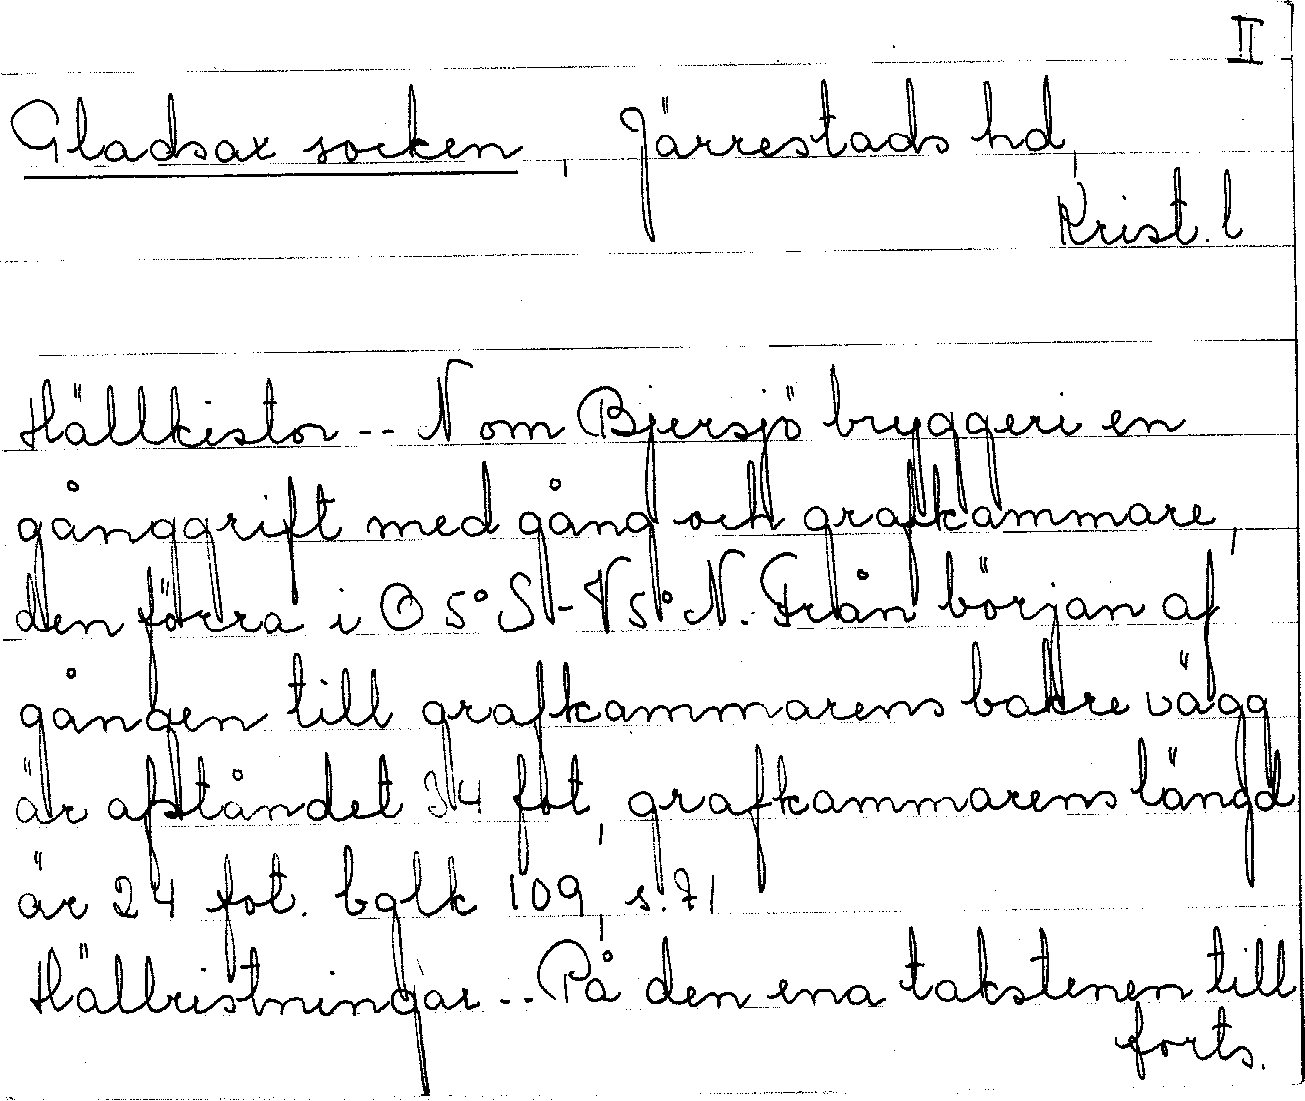 II
Gladsax socken, Järrestads hd,
Krist. l
Hällkistor -- N om Bjersjö bryggeri en
gånggrift med gång och grafkammare,
den förra i Ö 5° S - V 5° N. Från början af
gången till grafkammarens bakre vägg
är afståndet 34 fot, grafkammarens längd
är 24 fot. bglk 109, s. 71
Hällristningar -- På den ena takstenen till
forts.